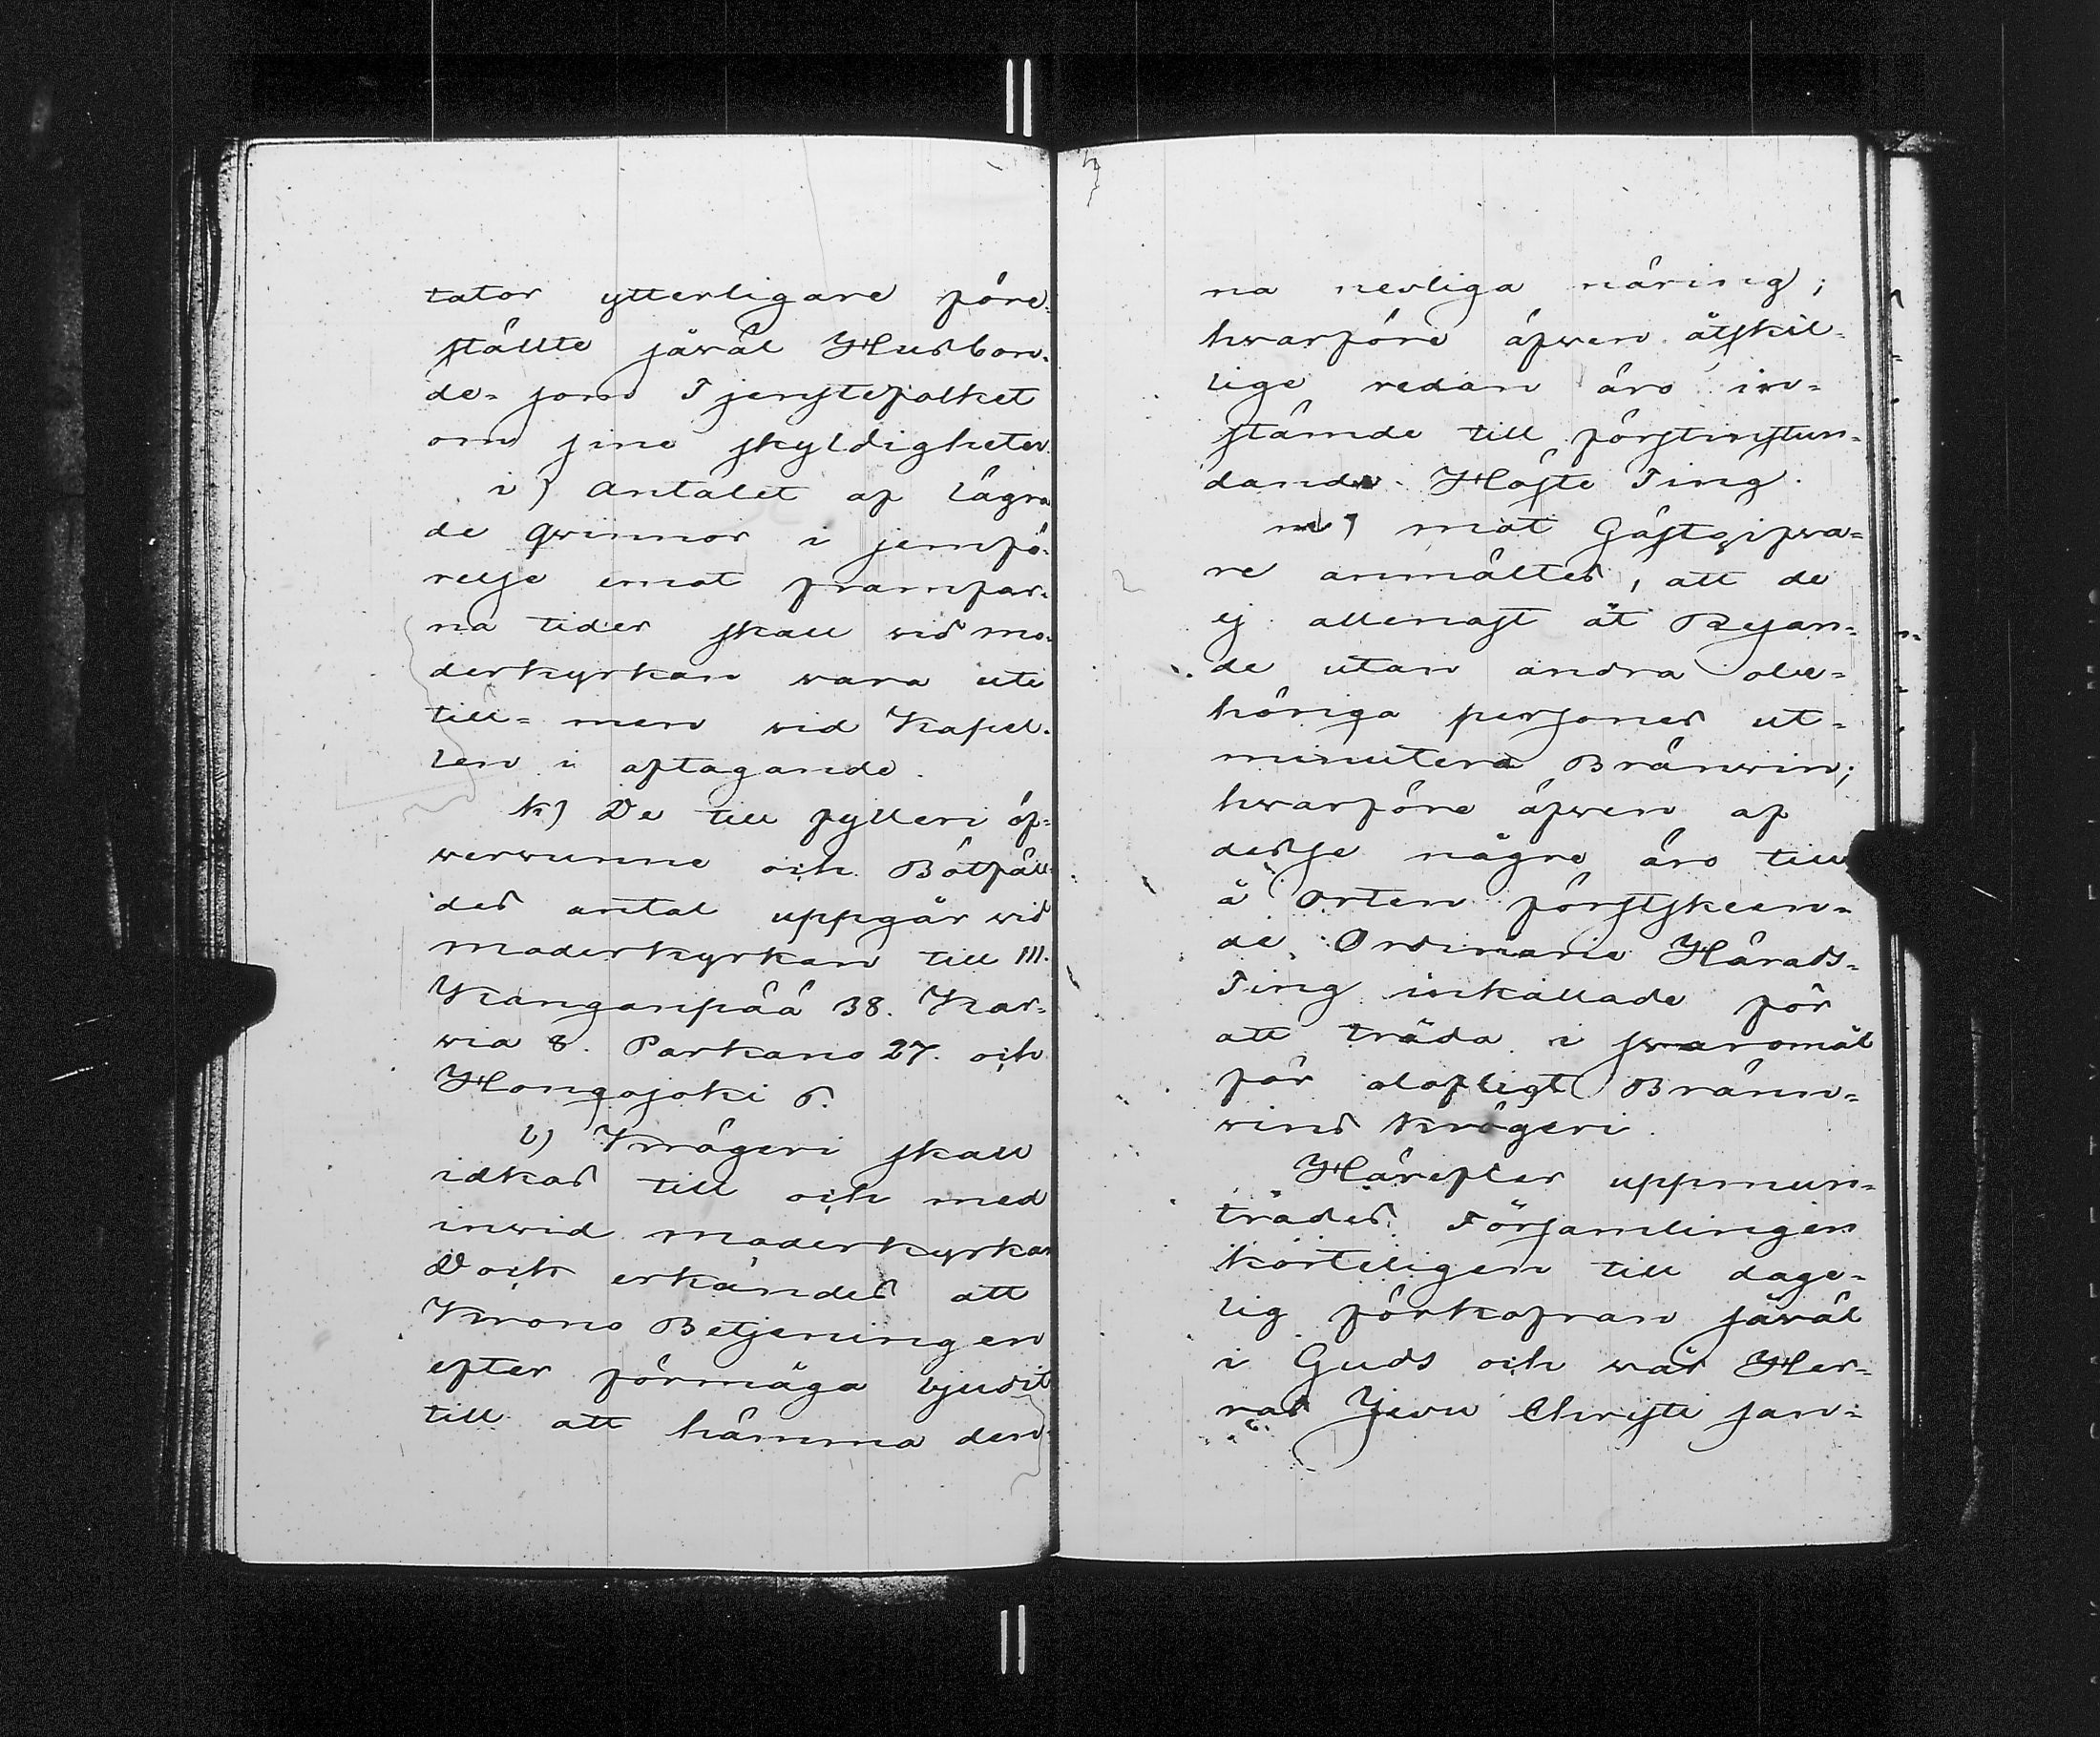 tator ytterligare före-
ställte såväl Husbon-
de- som Tjenstefolket
om sine skyldigheter.
i) Antalet af lägra-
de qwinnor i jemfö-
relse emot framfar-
na tider skall wid mo-
derkyrkan wara ute
till- men wid Kapel-
len i aftagande.
k) De till fylleri öf-
werwunne och Botfäll-
des antal uppgår wid
moderkyrkan till 111.
Kanganpää 38. Kar-
wia 8. Parkano 27. och
Hongojoki 6.
l) Krögeri skall
idkas till och med
inwid moderkyrkan
Doch erkändes att
Krono Betjeningen
efter förmåga bjudit
till att hämma den-
na nesliga näring;
hwarföre äfwen åtskil-
lige redan äro in-
stämde till förstinstun-
dande Höste Ting.
m) mot Gästgifwa-
re anmältes, att de
ej allenast åt Resan-
de utan andra obe-
höriga persones ut-
minutera Bränwin;
hwarföre äfwen af
desse någre äro till
å Orten förstskeen-
de Ordinarie Härads-
Ting inkallade för
att träda i swaromål
för olofligt Bränn-
wins Krögeri.
Härefter uppmun-
trades Församlingen
korteligen till dage-
lig förkofran såväl
i Guds och wår Her-
ras Jesu Christi san-